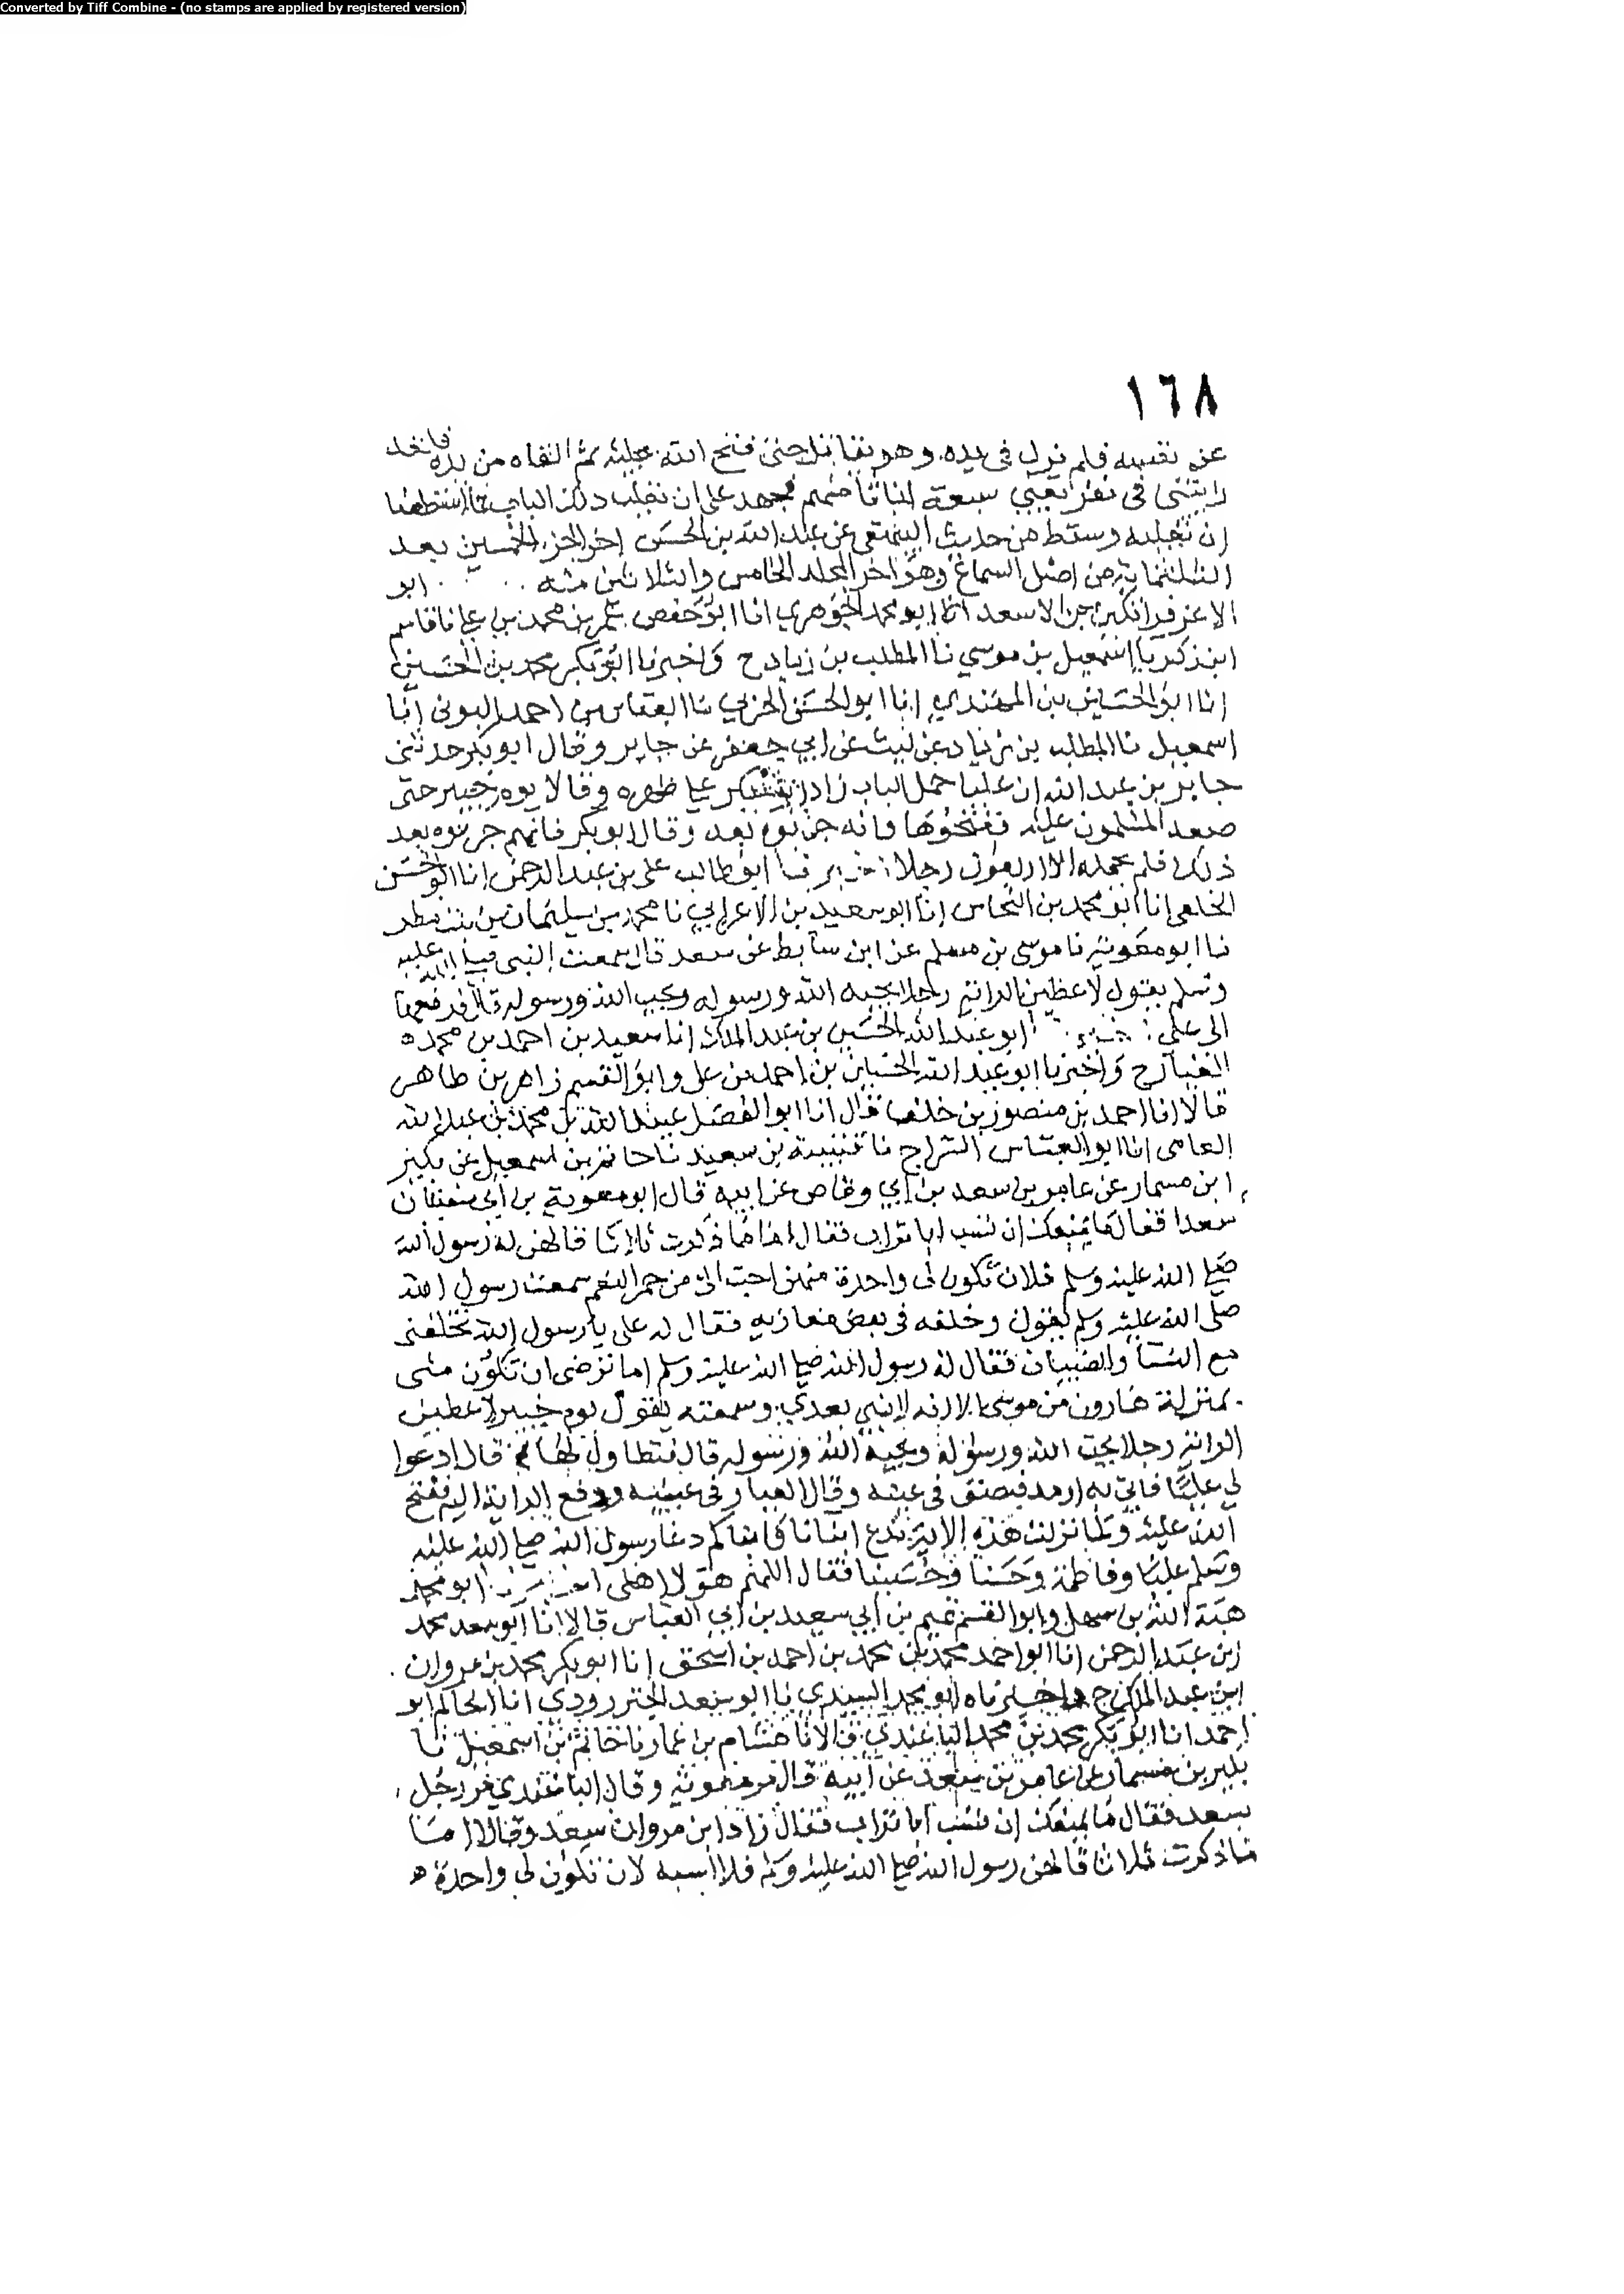 Converted by Tiff Combine - (no stamps are applied by registered version)
١٦٨
عن نفسه فلم يزل في يده وهو يقاتل حتى فتح الله عليه ثم القاه من يده فلقد
رايتني في نفر يعني سبعة انا ثامنهم نجهد على ان نقلب ذلك الباب فما استطعنا
ان نقلبه وسقط من حديث البيهقي عن عبد الله بن الحسن اخر الجزء الخمسين بعد
الثلثماية من اصل السماع وهو اخر المجلد الخامس والثلاثين منه ابو
الاعز قراتكين بن الاسعد انا ابو محمد الجوهري انا ابو حفص عمر بن محمد بن علي نا قاسم
ابن زكريا اسمعيل بن موسي نا المطلب بن زياد ح واخبرنا ابو بكر محمد بن الحسين
انا ابو الحسين بن المهتدي انا ابو الحسن الحربي نا العباس بن احمد البرتي انا
اسمعيل نا المطلب بن زياد عن ليث عن ابي جعفر عن جابر وقال ابو بكر حدثني
جابر بن عبد الله ان عليا حمل الباب زاد علي ظهره وقالا يوم خيبر حتى
صعد المسلمون عليه ففتحوها وانه جربوه بعد وقال ابو بكر فانهم جربوه بعد
ذلك فلم يحمله الا اربعون رجلا ابو طالب علي بن عبد الرحمن انا ابو الحسن
الخلعي انا ابو محمد بن النحاس انا ابو سعيد بن الاعرابي نا محمد بن سليمان بن بنت مطر
نا ابو معوية نا موسى بن مسلم عن ابن سابط عن سعد قال سمعت النبي صلى الله عليه
وسلم يقول لاعطين الراية رجلا يحبه الله ورسوله ويحب الله ورسوله قال فدفعها
الى علي ابو عبد الله الحسين بن عبد الملك انا سعيد بن احمد بن محمد
العيار ح واخبرنا ابو عبد الله الحسين بن احمد بن علي وابو القسم زاهر بن طاهر
قالا انا احمد بن منصور بن خلف قال انا ابو الفضل عبيد الله بن محمد بن عبد الله
العامي انا ابو العباس السراج نا قتيبة بن سعيد نا حاتم بن اسمعيل عن بكير
ابن مسمار عن عامر بن سعد بن ابي وقاص عن ابيه قال ابو معوية بن ابي سفيان
سعدا فقال ما يمنعك ان تسب ابا تراب فقال اما ما ذكرت ثلاثا قالهن له رسول الله
صلى الله عليه وسلم فلان تكون لي واحدة منهن احب الي من حمر النعم سمعت رسول الله
صلى الله عليه وسلم يقول وخلفه في بعض مغازيه فقال له علي يا رسول الله تخلفني
مع النسا والصبيان فقال له رسول الله صلى الله عليه وسلم اما ترضى ان تكون مني
بمنزلة هارون من موسى الا انه لا نبي بعدي وسمعته يقول يوم خيبر لاعطين
الراية رجلا يحب الله ورسوله ويحبه الله ورسوله قال فتطاول لها قال ادعوا
لي عليا فاتي به ارمد فبصق في عينه وقال العيار في عينيه ودفع الراية اليه ففتح
الله عليه ولما نزلت هذه الاية ندع ابنانا وابناكم دعا رسول الله صلى الله عليه
وسلم عليا وفاطمة وحسنا وحسينا فقال اللهم هولا اهلي ابو محمد
هبة الله بن سهل وابو القسم تميم بن ابي سعيد بن ابي العباس قالا انا ابو سعد محمد
ابن عبد الرحمن انا ابو احمد محمد بن محمد بن احمد بن اسحق انا ابو بكر محمد بن مروان
ابن عبد الملك ح واخبرناه ابو محمد السيدي نا ابو سعد الجنزرودي انا الحاكم ابو
احمد انا ابو بكر محمد بن محمد الباغندي قالا نا هشام بن عمار نا حاتم بن اسمعيل نا
بكير بن مسمار عن عامر بن سعد عن ابيه قال مر معوية وقال الباغندي مر رجل
بسعد فقال ما يمنعك ان تسب ابا تراب فقال زاد ابن مروان سعد وقالا اما
ما ذكرت ثلاثا قالهن رسول الله صلى الله عليه وسلم فلا اسبه لان تكون لي واحدة